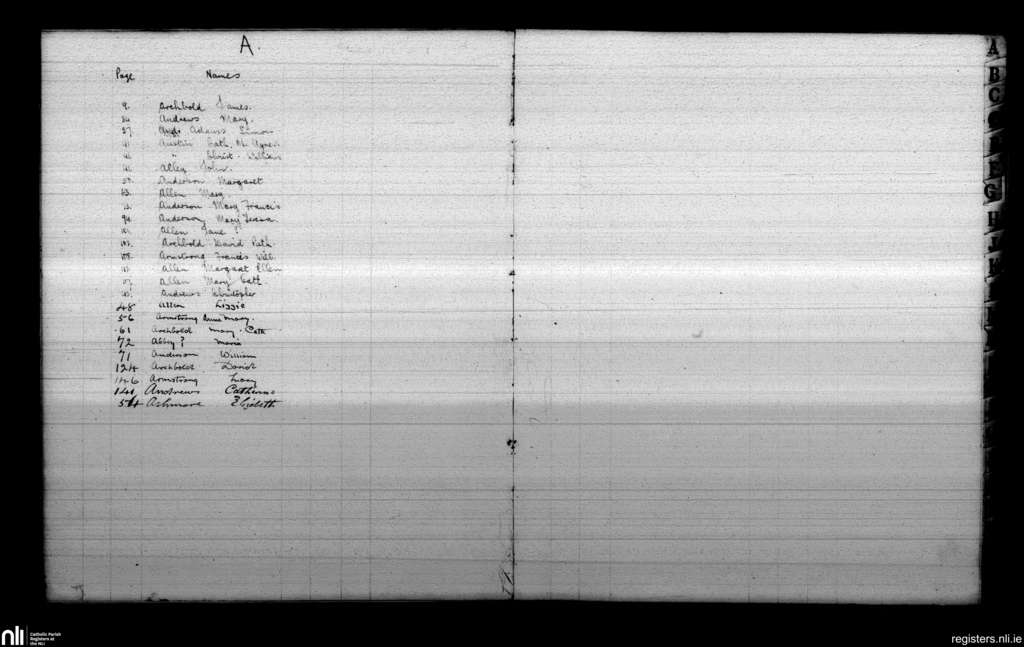 A.
Page Names
9. Archbold James.
Andrews Mary.
37. Adams Simon
41 Austin Cath. Agnes
" Christ. William
Alley John.
Anderson Margaret
63. Allen Mary.
Anderson Mary Francis
94. Anderson Mary Teresa
Allen Jane
Archbold David Path.
108. Armstrong Francis Will.
Allen Margaret Ellen
Allen Mary Cath.
Andrews Christopher
48 Allen Lizzie
56 Armstrong Mary.
61 Archbold Mary. Cath
72 Abbey? Maria
71 Anderson William
124 Archbold David
146 Armstrong
141 Andrews Catherine
54 Ashmore Elizbeth
A
B
C
E
G
H
nli Catholic Parish
Registers at
the NLI
registers.nli.ie